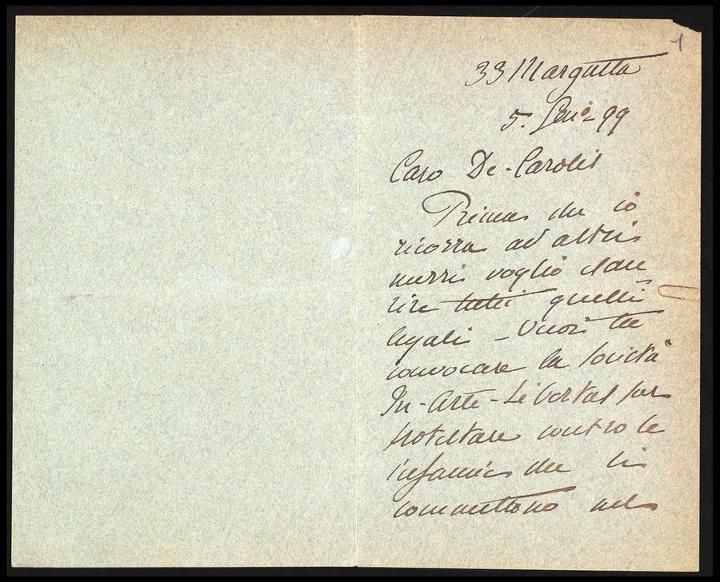 1
33 Margutta
5. Gen.º 99
Caro De-Carolis
Prima che io
ricorra ad altri
mezzi voglio esau-
rire tutti quelli
legali – Vuoi tu
convocare la società
In-Arte-Libertas per
protestare contro le
infamie che si
commettono nel